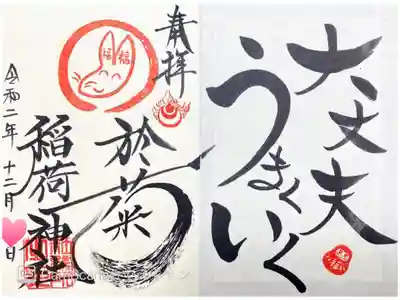 奉拝
於菊
稲荷神社
令和二年十二月
日
福福
大丈夫
うまくいく